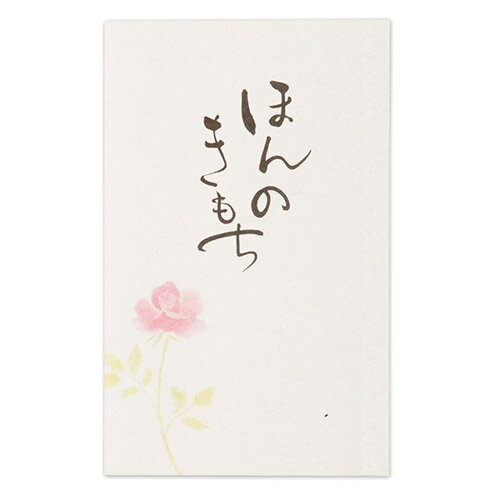 ほんの
きもち